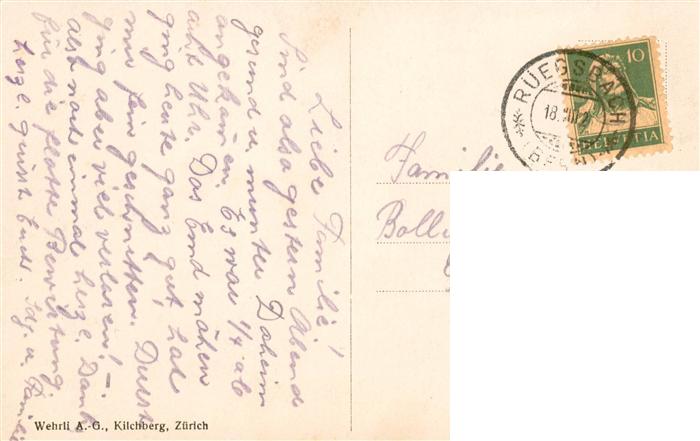 Liebe Familie!
Sind also gestern Abend
gesund u. munter Daheim
angekommen. Es war 1/4 ab
acht Uhr. Das Emd mähen
ging heute ganz gut, hat
nur fein geschnitten. Durst
ging aber viel verloren,
also noch einmal herzl. Dank
für die flotte Bewirtung
Herzl. grüsst Euch. Fdg. u. Familie
Wehrli A.-G., Kilchberg, Zürich
RÜEGSBACH
18.
(BERN)
10
HELVETIA
Famili
Bolli